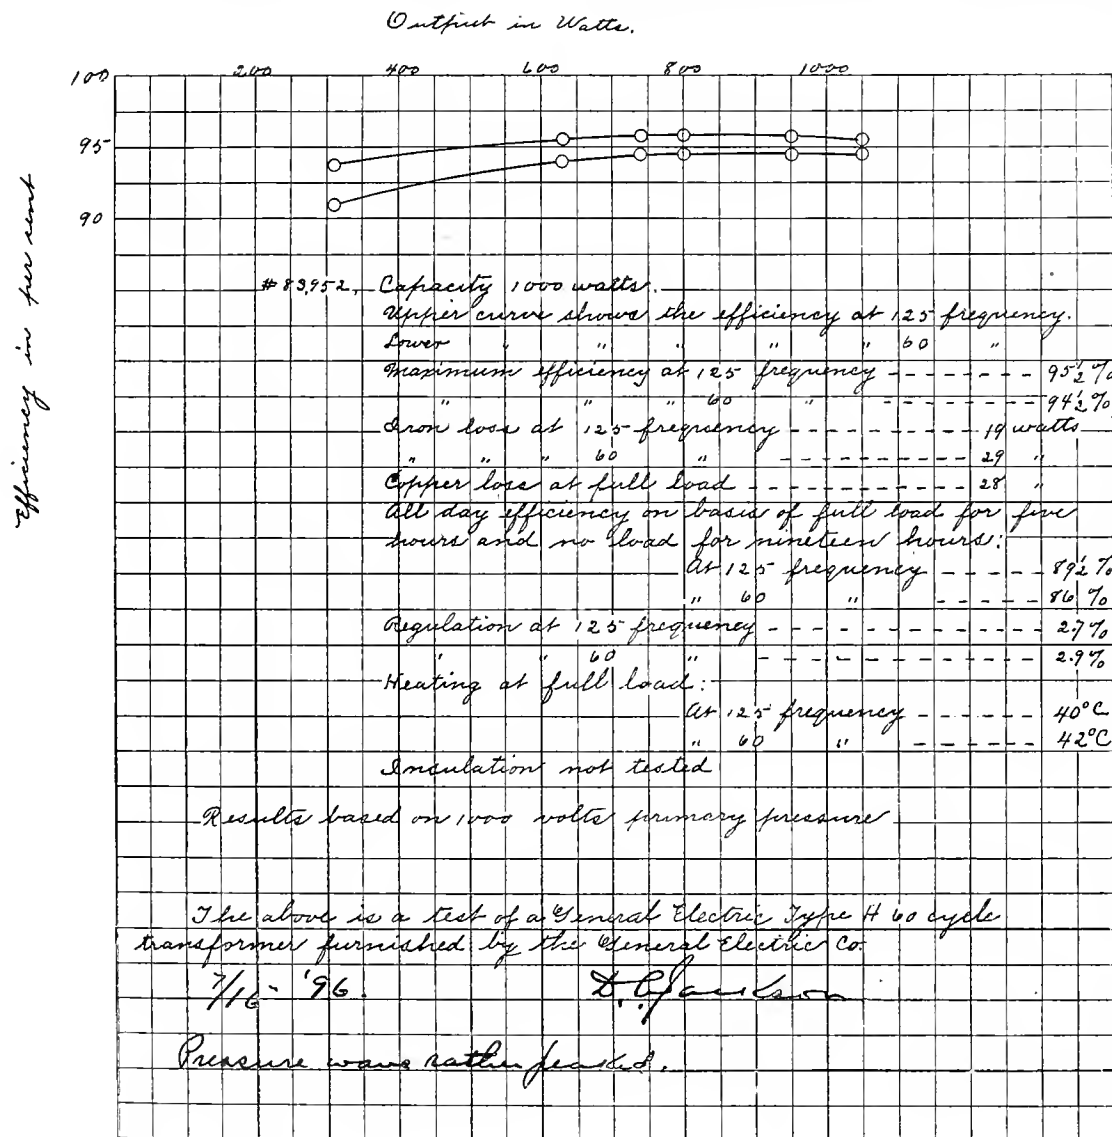 Output in Watts.
200 400 600 800 1000
100
95
90
Efficiency in per cent
#83,952, Capacity 1000 watts.
Upper curve shows the efficiency at 125 frequency.
Lower " " " " " 60 "
Maximum efficiency at 125 frequency - - - - - - - 95 1/2 %
" " " 60 " - - - - - - - 94 1/2 %
Iron loss at 125 frequency - - - - - - - - - 19 watts
" " " 60 " - - - - - - - - - 29 "
Copper loss at full load - - - - - - - - - - 28 "
All day efficiency on basis of full load for five
hours and no load for nineteen hours:
At 125 frequency - - - - - 89 1/2 %
" 60 " - - - - - 86 %
Regulation at 125 frequency - - - - - - - - - - 2.7 %
" " 60 " - - - - - - - - - - 2.9 %
Heating at full load:
At 125 frequency - - - - - 40°C
" 60 " - - - - - - 42°C
Insulation not tested
Results based on 1000 volts primary pressure
The above is a test of a General Electric Type H 60 cycle
transformer furnished by the General Electric Co.
7/16 - '96. D. C. Jackson
Pressure wave rather peaked.